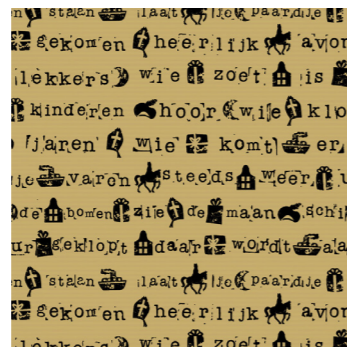 n staan laat paardje
gekomen heerlijk avon
lekkers wie zoet is
kinderen hoor wie klo
jaren wie komt er
je varen steeds weer
de bomen zie de maan schi
ur geklopt daar wordt za
n staan laat paardje
gekomen heerlijk avon
wie zoet is